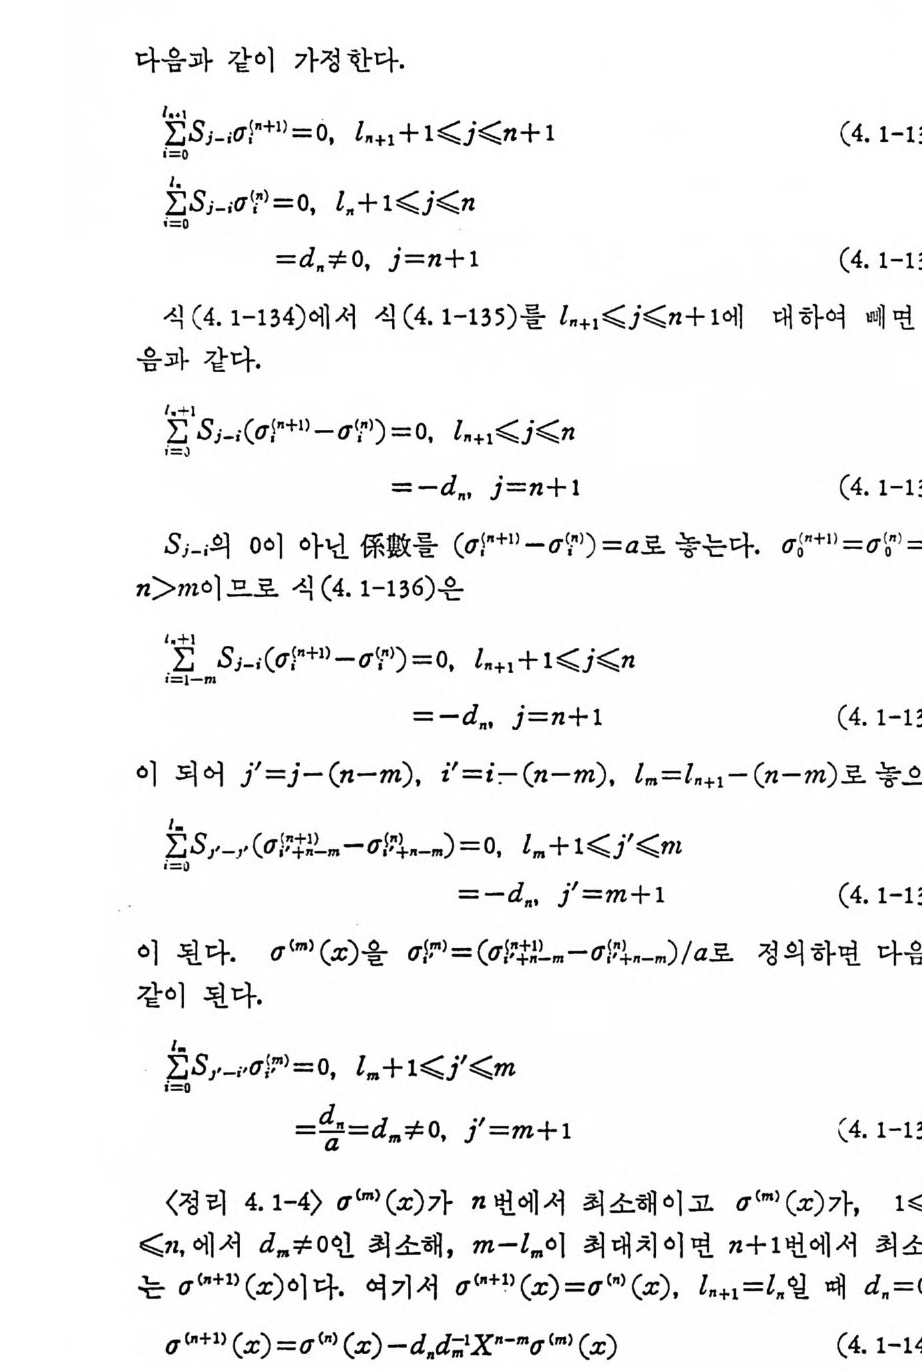 다음과 같이 가정한다.
\sum_{i=0}^{l_{n+1}} S_{j-i}σ_i^{(n+1)}=0, l_{n+1}+1≤j≤n+1 (4. 1-13
\sum_{i=0}^{l_n} S_{j-i}σ_i^{(n)}=0, l_n+1≤j≤n
=d_n≠0, j=n+1 (4. 1-13
식(4. 1-134)에서 식(4. 1-135)를 l_{n+1}≤j≤n+1에 대하여 빼면
음과 같다.
\sum_{i=0}^{l_n+1} S_{j-i}(σ_i^{(n+1)}-σ_i^{(n)})=0, l_{n+1}≤j≤n
=-d_n, j=n+1 (4. 1-13
S_{j-i}의 0이 아닌 係數를 (σ_i^{(n+1)}-σ_i^{(n)})=a로 놓는다. σ_0^{(n+1)}=σ_0^{(n)}=
n>m이므로 식(4. 1-136)은
\sum_{i=1-m}^{l_n+1} S_{j-i}(σ_i^{(n+1)}-σ_i^{(n)})=0, l_{n+1}+1≤j≤n
=-d_n, j=n+1 (4. 1-13
이 되어 j′=j-(n-m), i′=i-(n-m), l_m=l_{n+1}-(n-m)로 놓으
\sum_{i=0}^{l_m} S_{j′-j′}(σ_{i′+n-m}^{(n+1)}-σ_{i′+n-m}^{(n)})=0, l_m+1≤j′≤m
=-d_n, j′=m+1 (4. 1-13
이 된다. σ^{(m)}(x)을 σ_{i′}^{(m)}=(σ_{i′+n-m}^{(n+1)}-σ_{i′+n-m}^{(n)})/a로 정의하면 다음
같이 된다.
\sum_{i=0}^{l_m} S_{j′-i′}σ_{i′}^{(m)}=0, l_m+1≤j′≤m
=\frac{d_n}{a}=d_m≠0, j′=m+1 (4. 1-13
〈정리 4. 1-4〉 σ^{(m)}(x)가 n번에서 최소해이고 σ^{(m)}(x)가, 1≤
≤n, 에서 d_m≠0인 최소해, m-l_m이 최대치이면 n+1번에서 최소
는 σ^{(n+1)}(x)이다. 여기서 σ^{(n+1)}(x)=σ^{(n)}(x), l_{n+1}=l_n일 때 d_n=0
σ^{(n+1)}(x)=σ^{(n)}(x)-d_nd_m^{-1}X^{n-m}σ^{(m)}(x) (4. 1-14